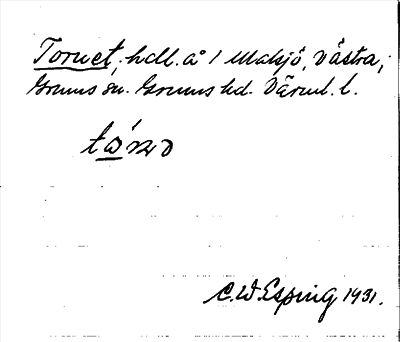 Tornet, hdl. å 1 Malsjö, Västra,
Grums sn. Grums hd. Värml. l.
C.W. Esping 1931.